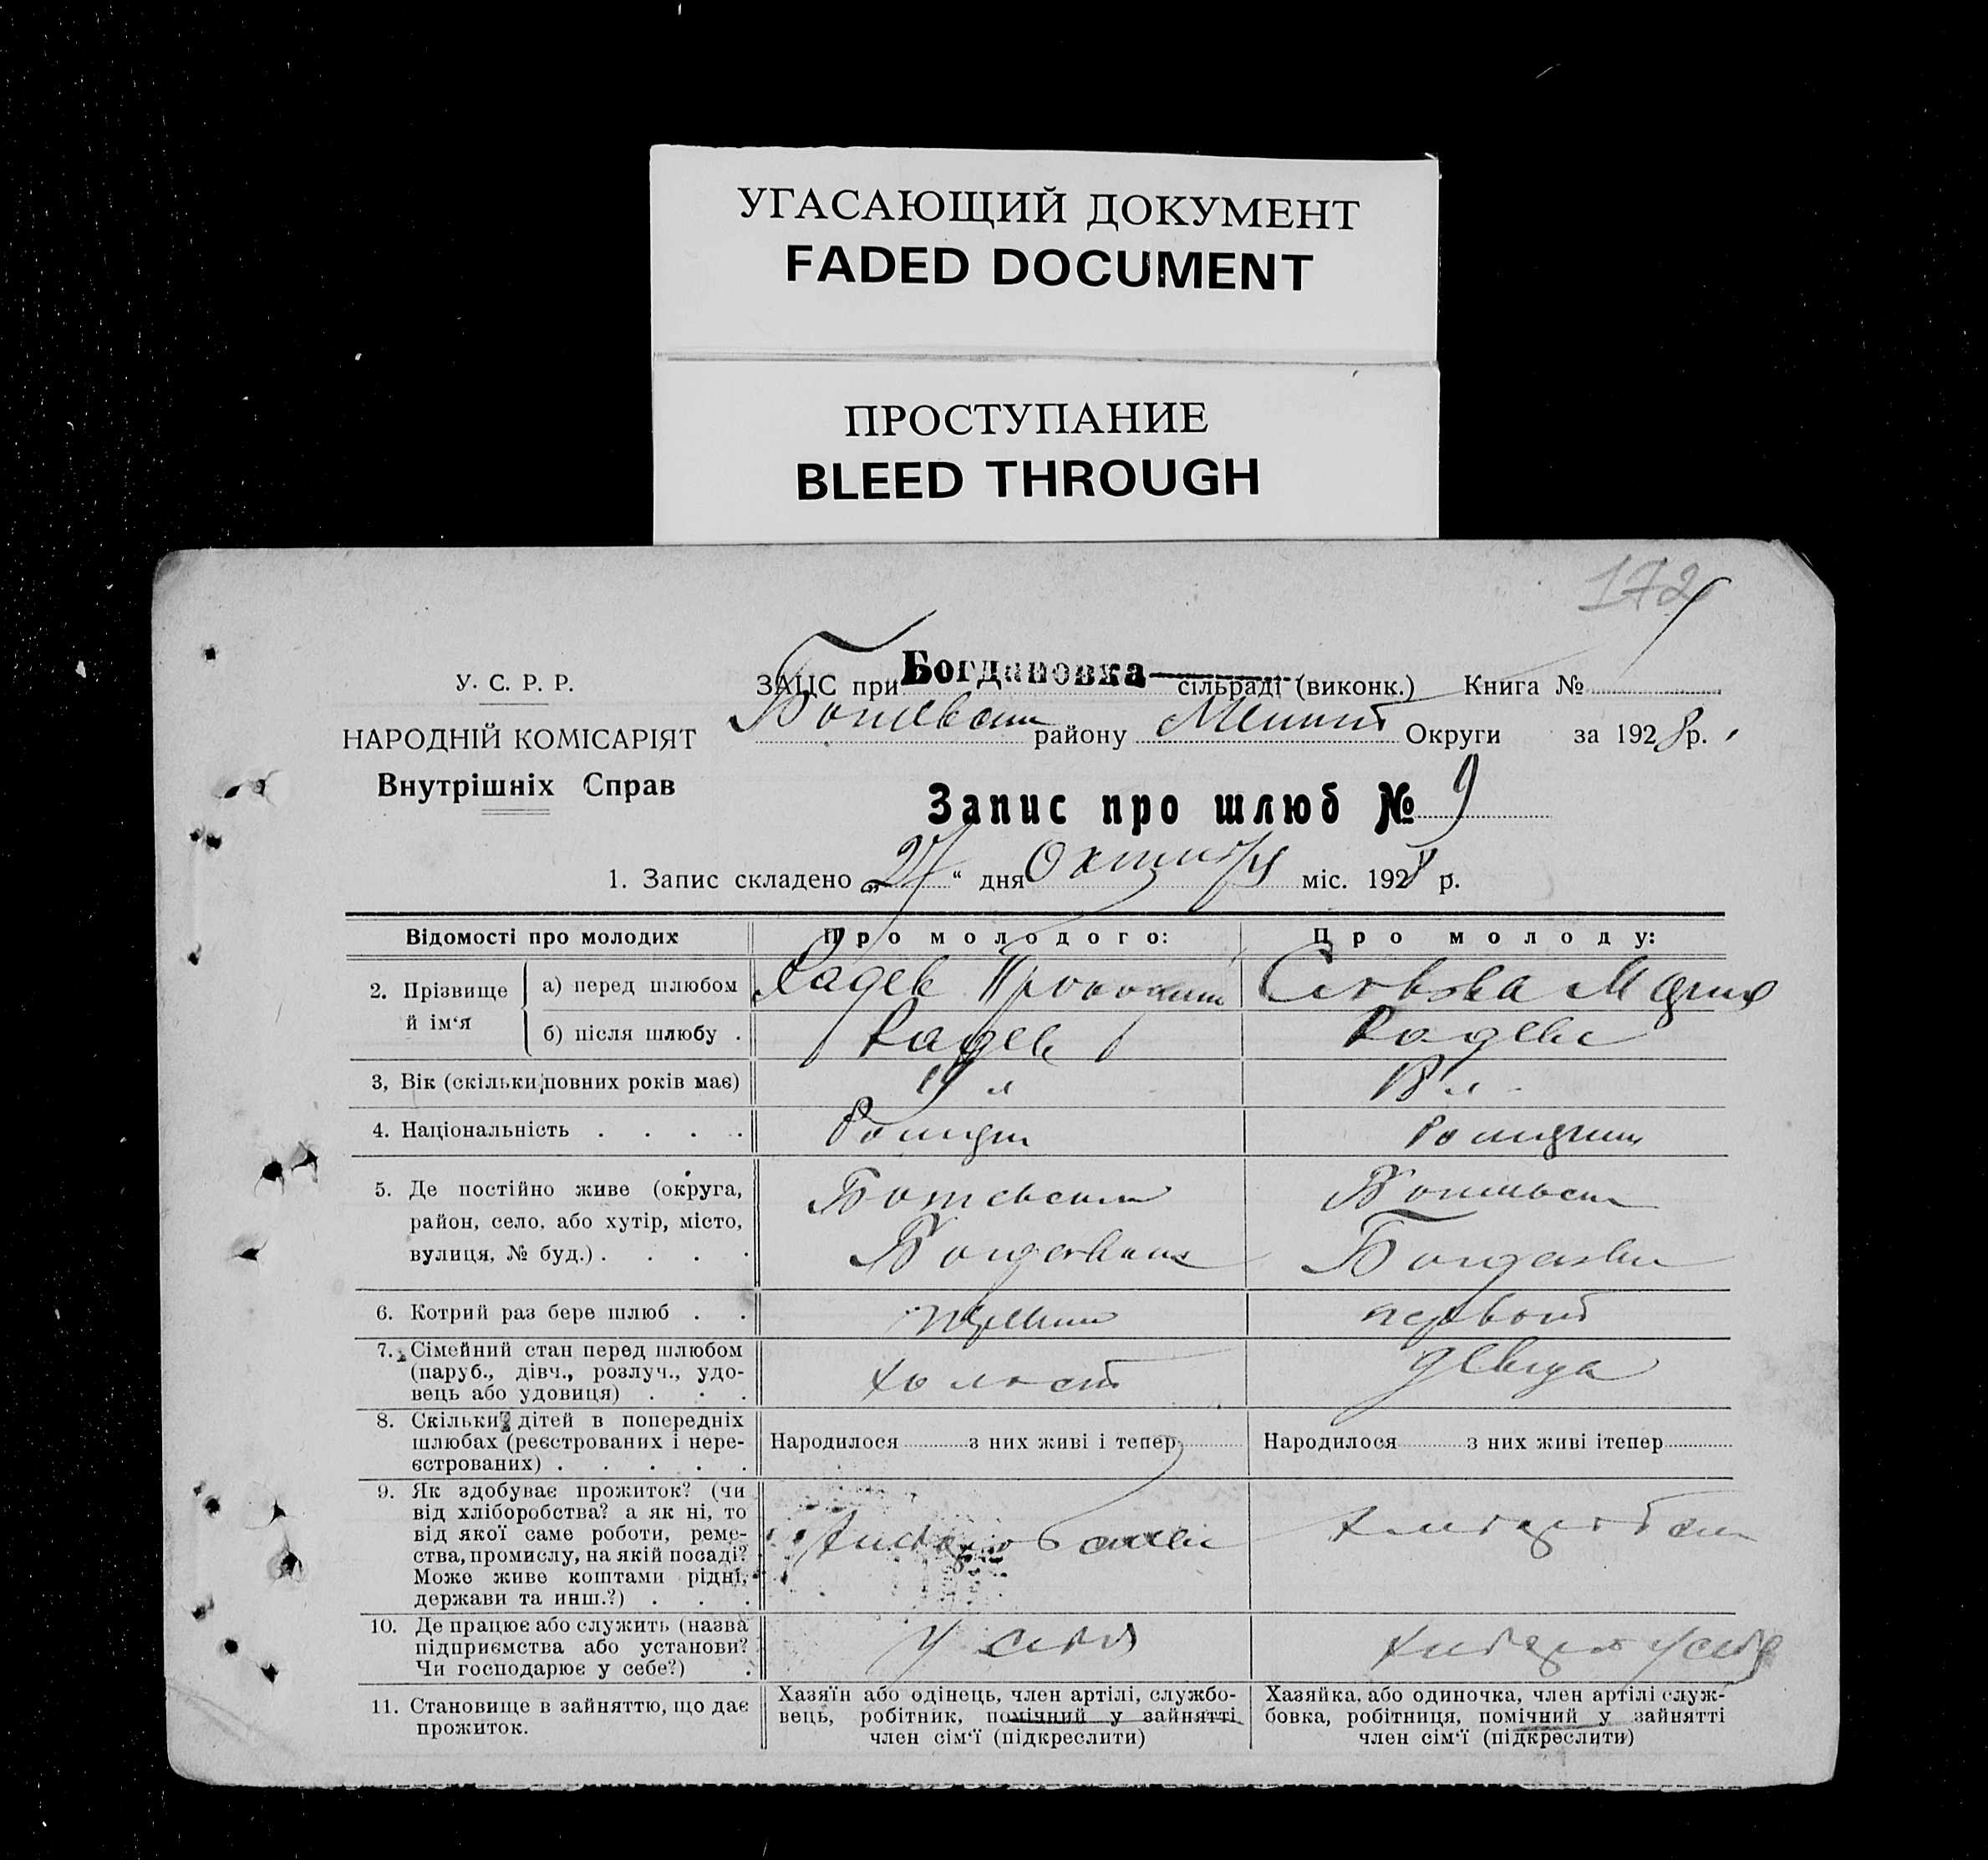 УГАСАЮЩИЙ ДОКУМЕНТ
FADED DOCUMENT
ПРОСТУПАНИЕ
BLEED THROUGH
172
У. С. Р. Р.
НАРОДНІЙ КОМІСАРІЯТ
Внутрішніх Справ
ЗАЦС при Богдановка сільраді (виконк.) Книга №
району Округи за 1928 р.
Запис про шлюб № 9
1. Запис складено „27“ дня Октября міс. 1928 р.
Відомості про молодих Про молодого: Про молоду:
2. Прізвище й ім‘я
а) перед шлюбом Радев Мария
б) після шлюбу . Радев Радева
3, Вік (скільки повних років має) 19 л 18 л
4. Національність . . . .
5. Де постійно живе (округа,
район, село, або хутір, місто,
вулиця, № буд.) . . . .
6. Котрий раз бере шлюб . . первый первый
7. Сімейний стан перед шлюбом
(паруб., дівч., розлуч., удо-
вець або удовиця) . . . холост девица
8. Скільки дітей в попередніх
шлюбах (реєстрованих і нере-
єстрованих) . . . . .
Народилося з них живі і тепер Народилося з них живі ітепер
9. Як здобуває прожиток? (чи
від хліборобства? а як ні, то
від якої саме роботи, реме-
ства, промислу, на якій посаді?
Може живе коштами рідні,
держави та инш.?) . . .
10. Де працює або служить (назва
підприємства або установи?
Чи господарює у себе?) . у себя
11. Становище в зайняттю, що дає
прожиток.
Хазяїн або одінець, член артілі, службо-
вець, робітник, помічний у зайнятті
член сім‘ї (підкреслити)
Хазяйка, або одиночка, член артілі служ-
бовка, робітниця, помічний у зайнятті
член сім‘ї (підкреслити)